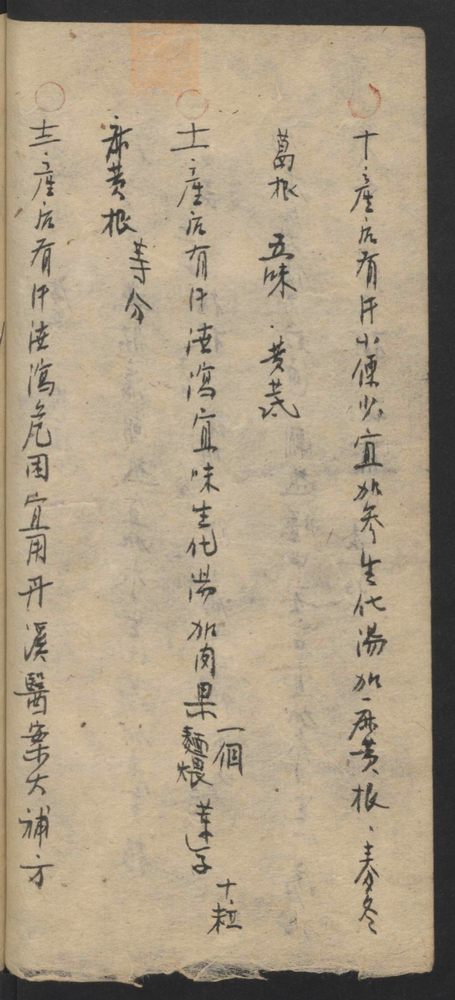 十產后有汗小便少宜加參生化湯加麻黃根麥冬
葛根 五味 黃芪
十一產后有汗洩瀉宜味生化湯加肉果一個麵煨 蓮子十粒
麻黃根等分
十二產后有汗洩瀉危困宜用丹溪醫案大補方